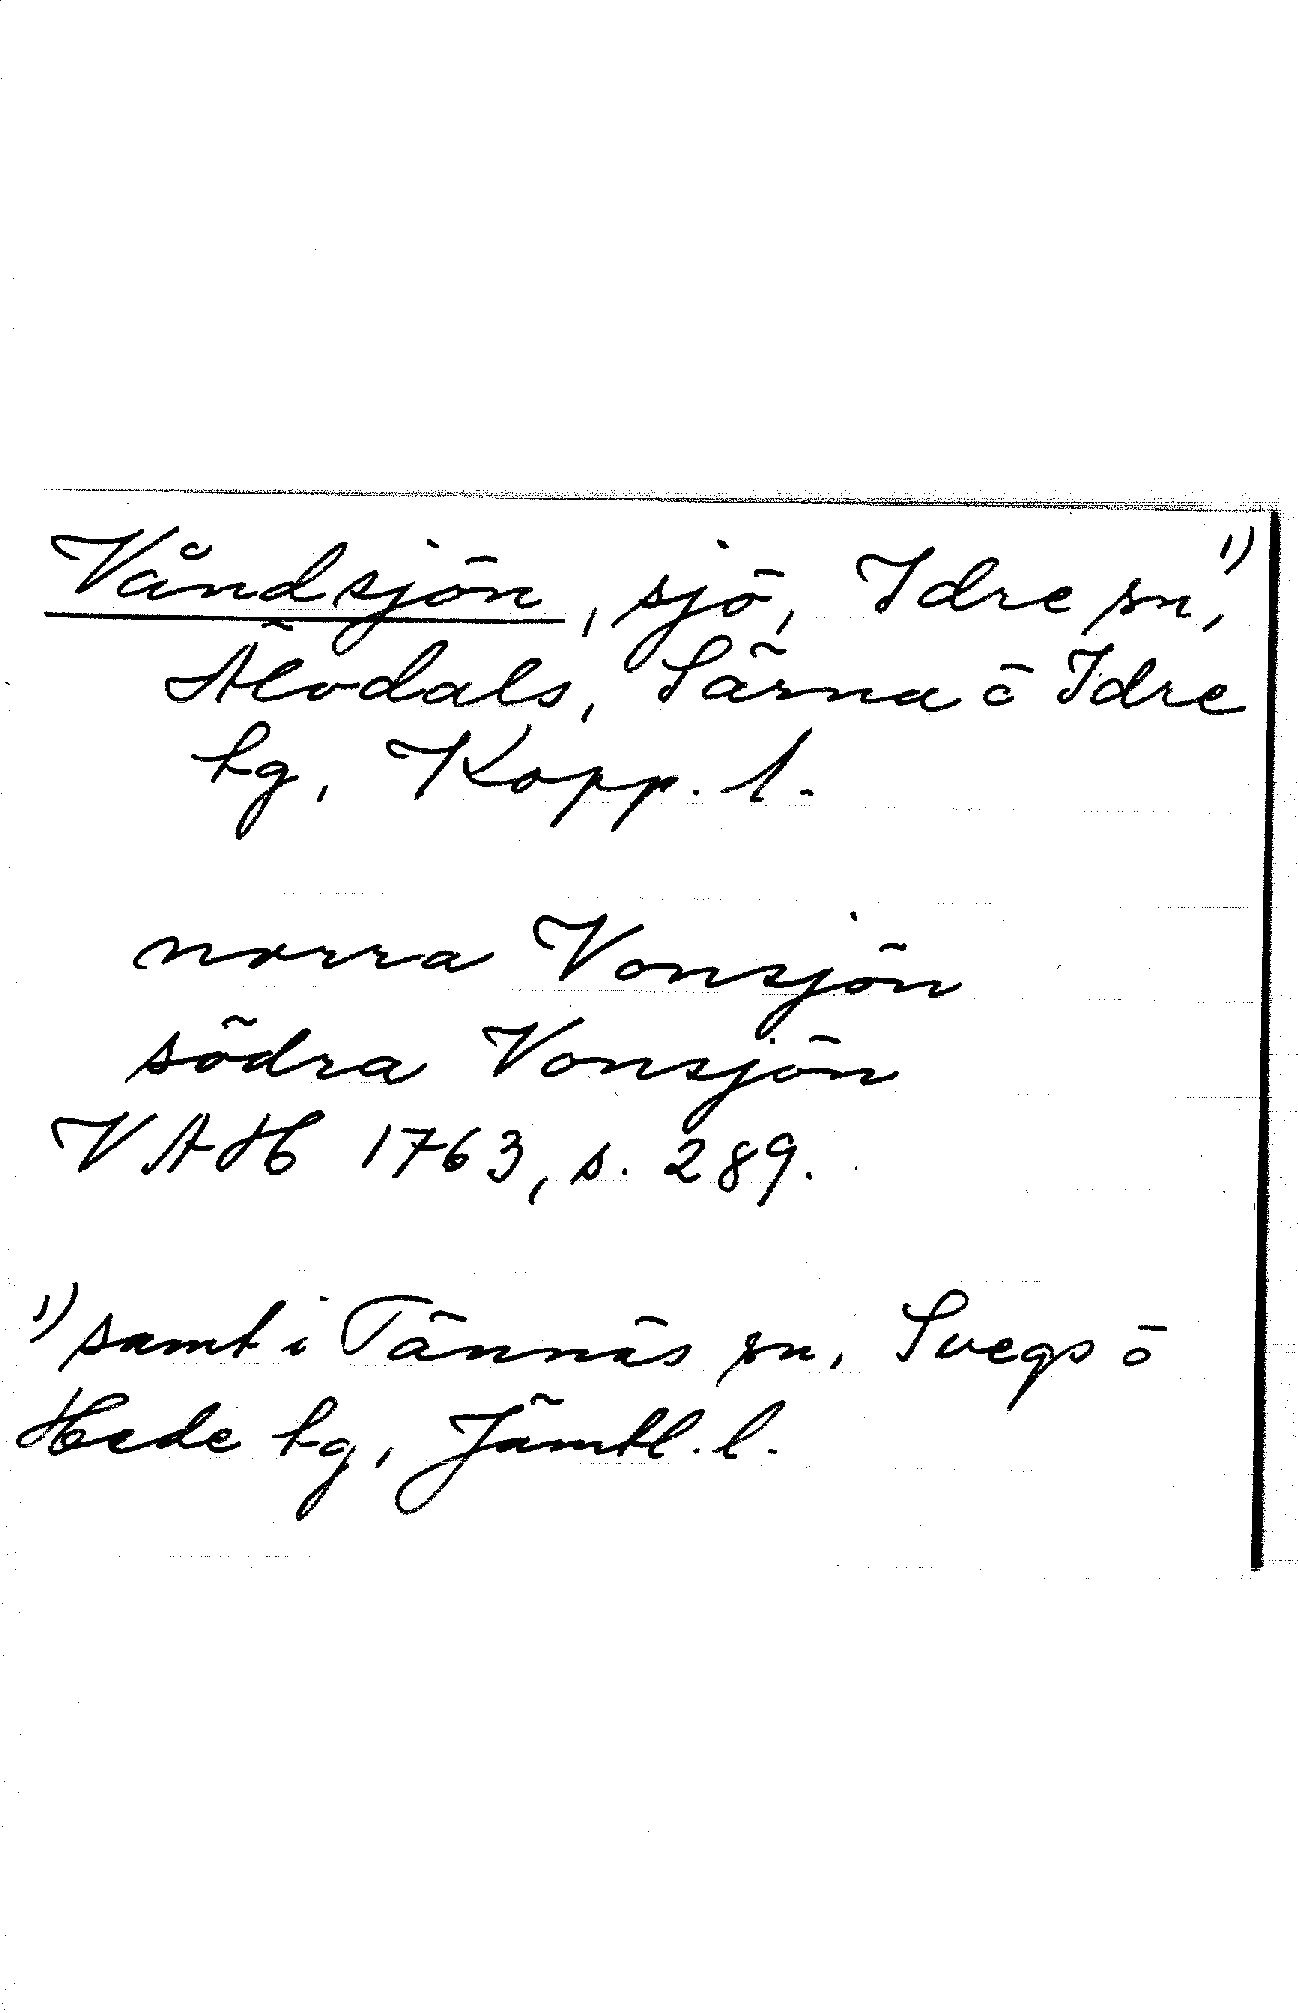 Våndsjön, sjö, Idre sn, 1)
Älvdals, Särna ö Idre
tg, Kopp. l.
norra Vonsjön
södra Vonsjön
VAH 1763, s. 289.
1) samt i Tännäs sn, Svegs ö
Hede tg, Jämtl. l.